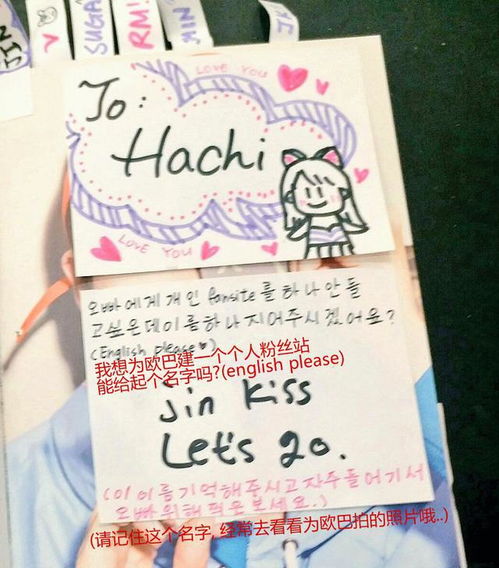 V
SUGA
RM!
MIN
LOVE YOU
To:
Hachi
LOVE YOU
오빠에게 개인 fansite를 하나 만들
고싶은데 이름하나 지어주시겠어요?
(English please♥)
我想为欧巴建一个个人粉丝站
能给起个名字吗?(english please)
Jin kiss
Let's go.
(이 이름 기억해주시고 자주 들어가서
오빠 위해 찍은
보세요.)
(请记住这个名字, 经常去看看为欧巴拍的照片哦..)